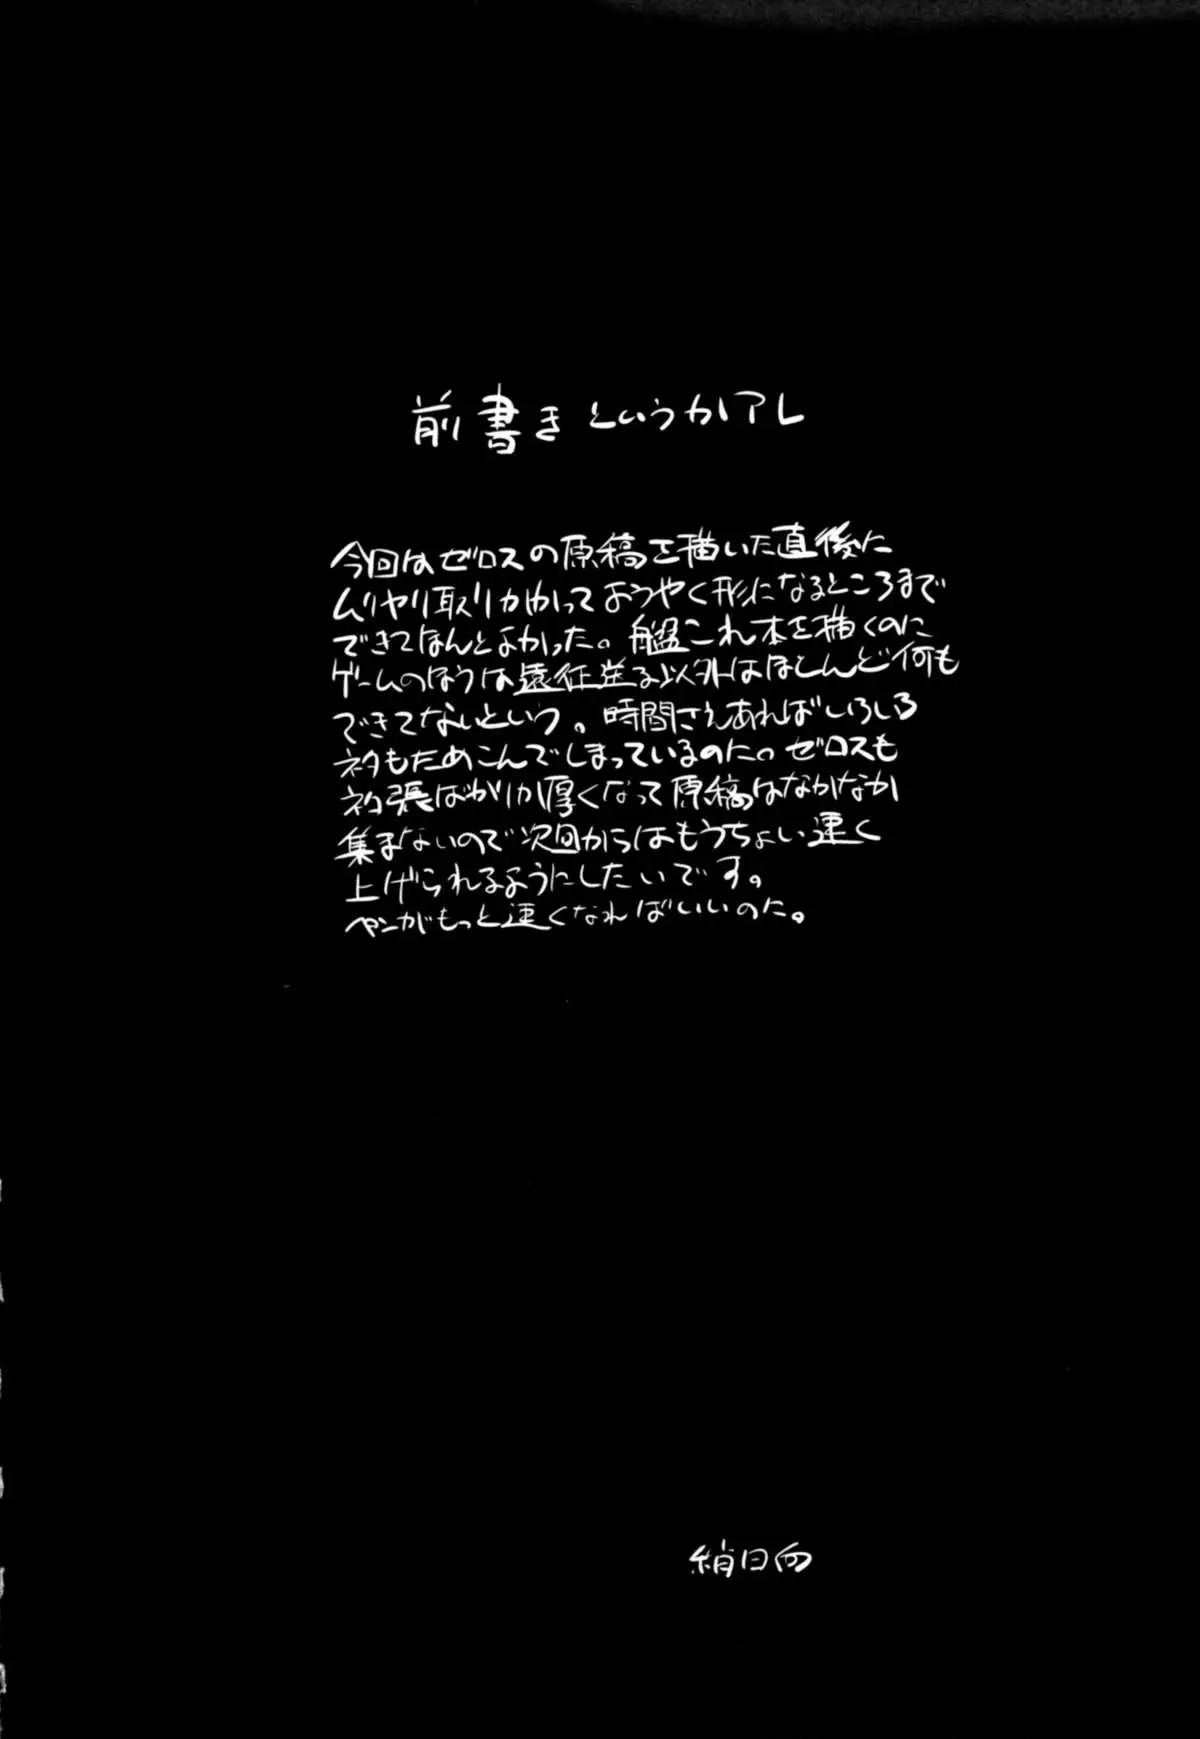 前書きというかアレ
今回はゼロスの原稿を描いた直後に
ムリヤリ取りかかってようやく形になるところまで
できてほんとよかった。艦これ本を描くのに
ゲームのほうは遠征送る以外はほとんど何も
できてないという。時間さえあればいろいろ
ネタもためこんでしまっているのに。ゼロスも
ネタ帳ばかりが厚くなって原稿はなかなか
集まないので次回からはもうちょい速く
上げられるようにしたいです。
ペンがもっと速くなればいいのに。
綃日向